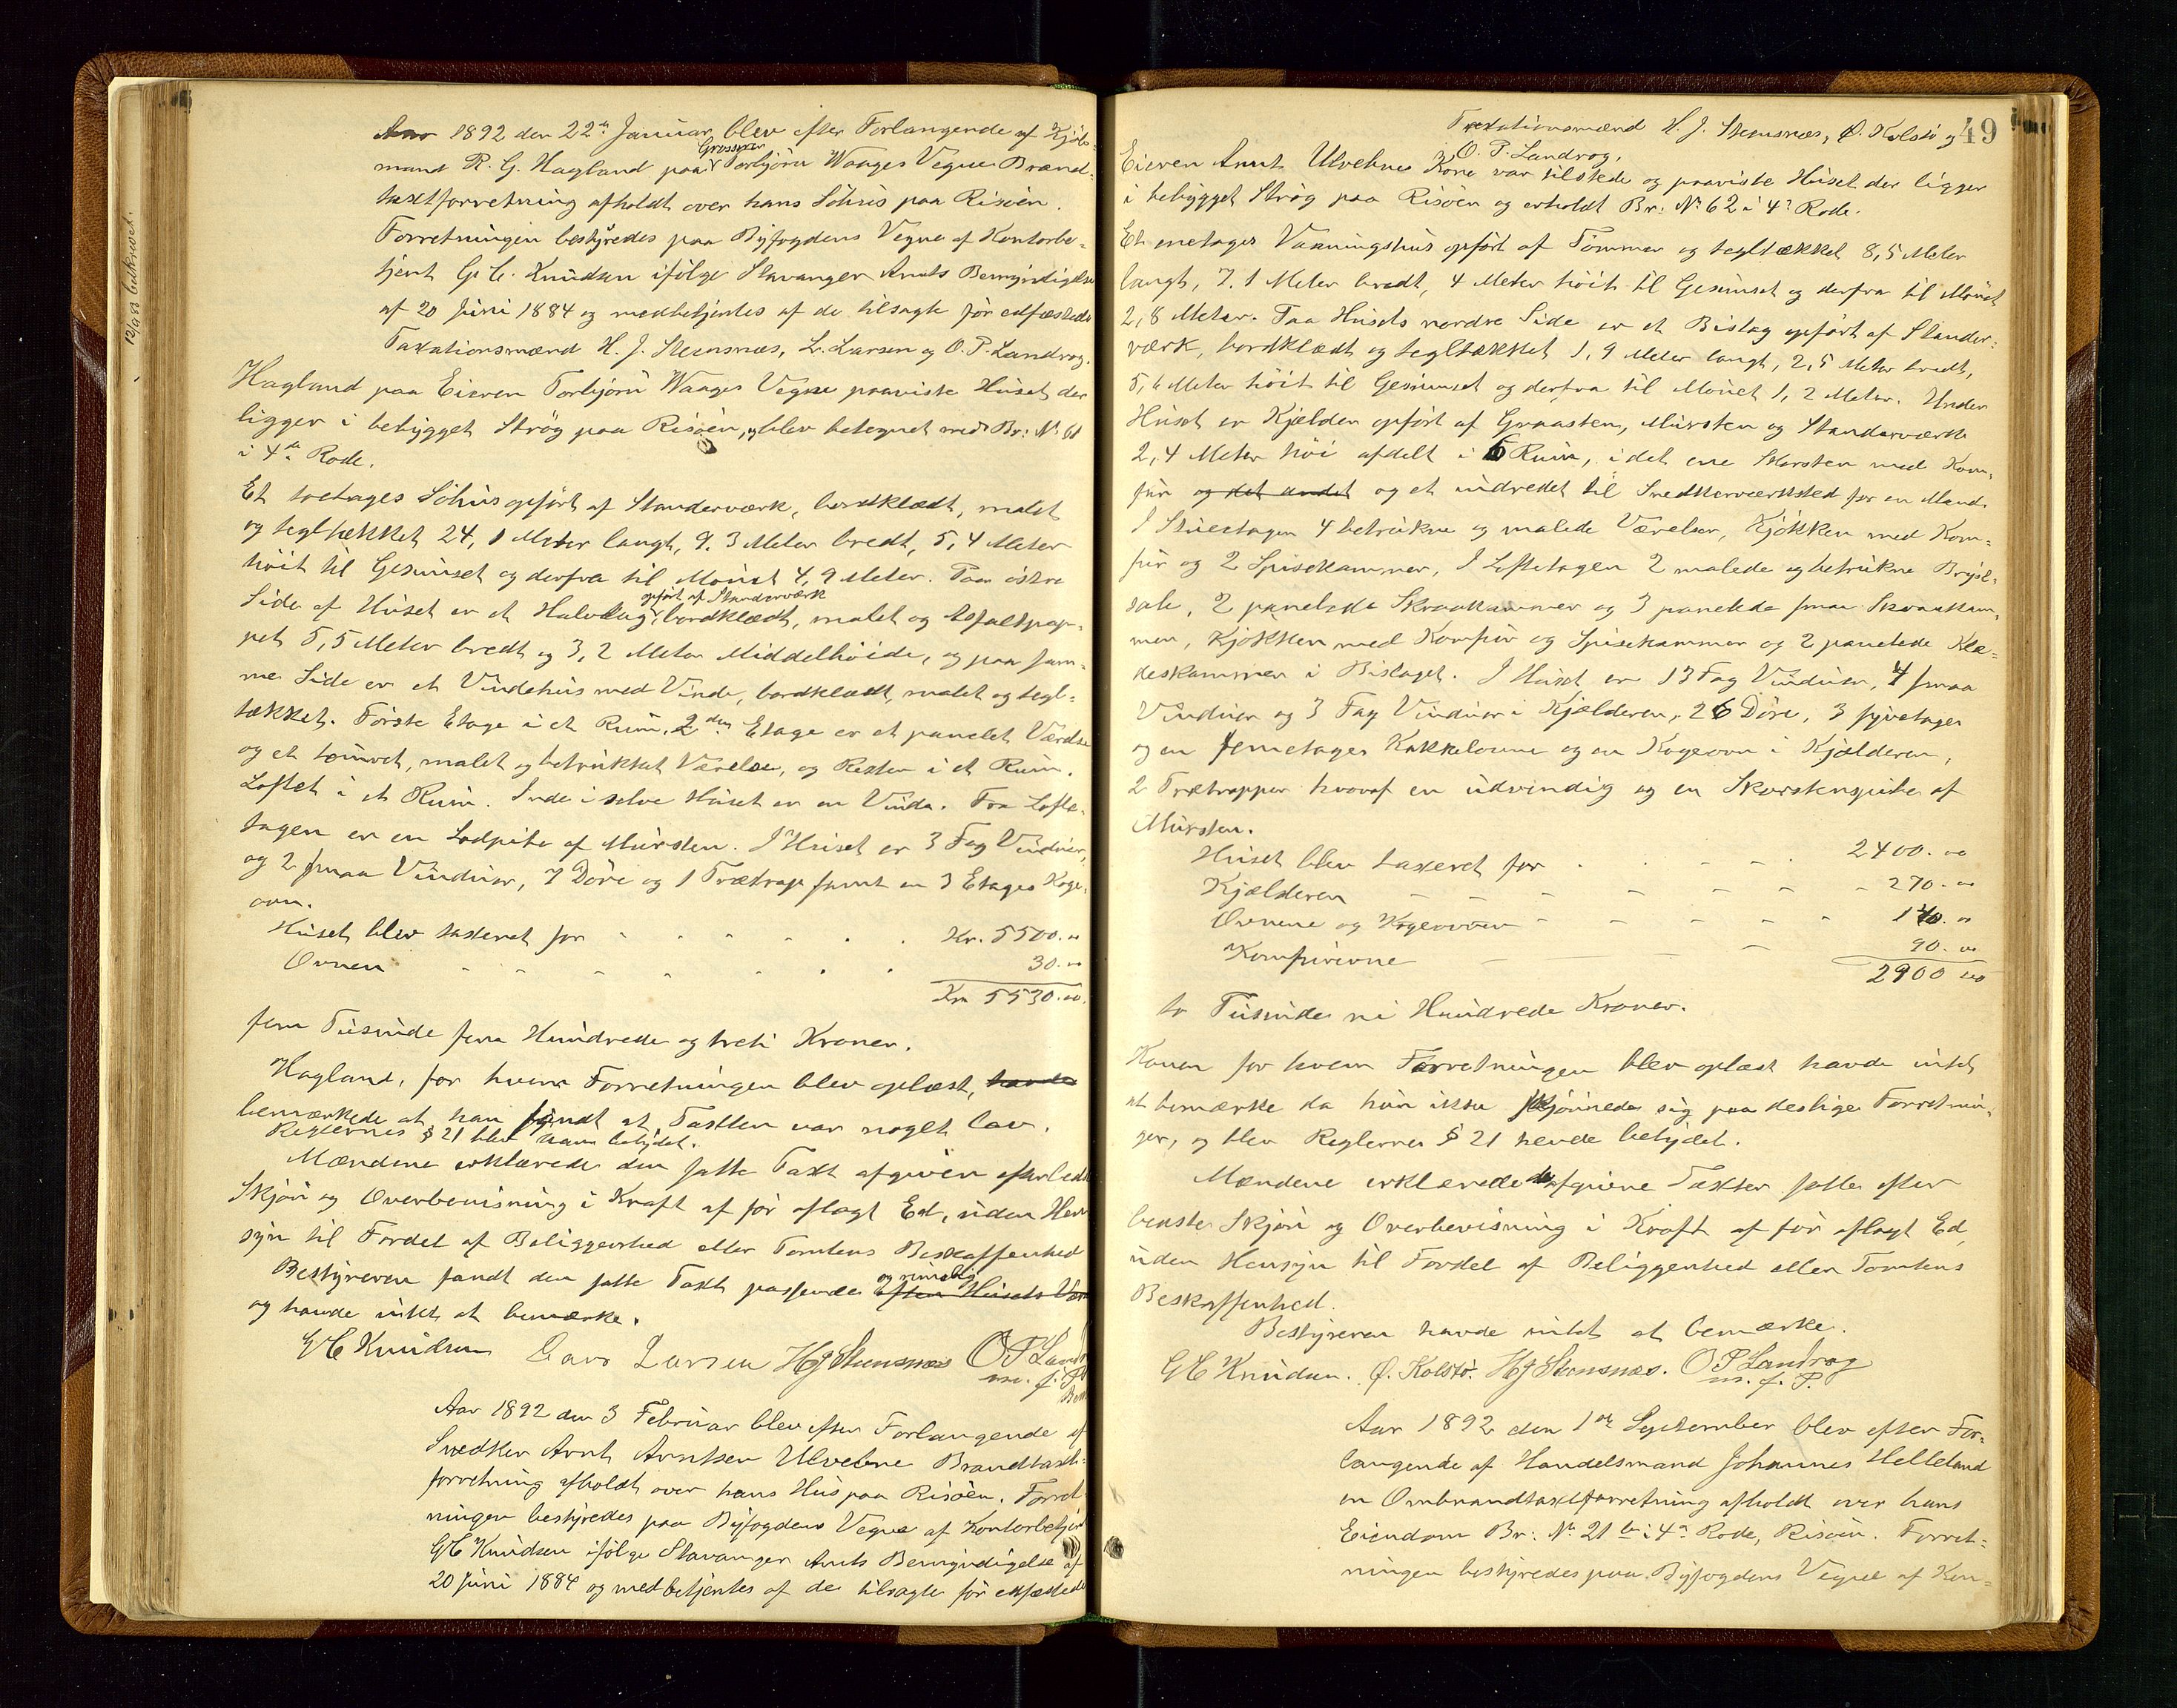 12/9 83 bekrevet.
Aar 1892 den 22de Januar blev efter Forlangende af Kjöb-
mand R. G. Hagland paa Grosserer Torbjörn Waages Vegne Brand-
taxtforretning afholdt over hans Söhus paa Risöen.
Forretningen bestyredes paa Byfogdens Vegne af Kontorbe-
tjent G. C. Knudsen ifölge Stavanger Amts Bemyndigelse
af 20 Juni 1884 og medbetjentes af de tilsagte för edfæstede
Taxationsmænd H. J. Stensnæs, L. Larsen og O. P. Landrog.
Hagland paa Eieren Torbjörn Waages Vegne paaviste Huset der
ligger i bebygget Strög paa Risöen, og blev betegnet med Br: No 61
i 4de Rode.
Et toetages Söhus opfört af Standerværk, bordklædt, malet
og tegltækket 24,1 Meter langt, 9.3 Meter bredt, 5,4 Meter
höit til Gesimset og derfra til Mönet 4,9 Meter. Paa östre
Side af Huset er et Halvtag opfört af Standerværk, bordklædt, malet og asfaltpap-
pet 5,5 Meter bredt og 3,2 Meter Middelhöide, og paa sam-
me Side er et Vindehus med Vinde, bordklædt, malet og tegl-
tækket. Förste Etage i et Rum, 2den Etage er et panelet Værelse
og et tömret, malet og betrukket Værelse, og Resten i et Rum.
Loftet i et Rum. Inde i selve Huset er en Vinde. Fra Lofte-
tagen er en Lodpibe af Mursten. I Huset er 3 Fag Vinduer,
og 2 smaa Vinduer, 7 Döre og 1 Trætrap samt en 3 Etages Koge-
ovn.
Huset blev taxeret for Kr. 5500.00
Ovnen 30.00
Kr 5530.00
fem Tusinde fem Hundrede og treti Kroner.
Hagland, for hvem Forretningen blev oplæst, havde
bemærkede at han fandt at Taxten var noget lav.
Reglernes § 21 blev ham betydet.
Mændene erklærede den satte Taxt afgiven efter bedste
Skjön og Overbevisning i Kraft af för aflagt Ed, uden Hen-
syn til Fordel af Beliggenhed eller Tomtens Beskaffenhed
Bestyreren fandt den satte Taxt passende og rimelig efter Husets Værd
og havde intet at bemærke.
G C Knudsen Lars Larsen H J Stensnæs O P Landrog
m. f. P.
Aar 1892 den 3 Februar blev efter Forlangende af
Snedker Arnt Arntsen Ulvehne Brandtaxt-
forretning afholdt over hans Hus paa Risöen. Forret-
ningen bestyredes paa Byfogdens Vegne af Kontorbetjent
G C Knudsen ifölge Stavanger Amts Bemyndigelse af
20 Juni 1884 og medbetjentes af de tilsagte för edfæstede
49
Taxationsmænd H. J. Stensnæs, Ö. Kolstö og
O. P. Landrog.
Eieren Arnt Ulvehnes Kone var tilstede og paaviste Huset der ligger
i bebygget Strög paa Risöen og erholdt Br: No 62 i 4de Rode.
Et enetages Vaaningshus opfört af Tömmer og tegltækket 8,5 Meter
langt, 7.1 Meter bredt, 4 Meter höit til Gesimset og derfra til Mönet
2,8 Meter. Paa Husets nordre Side er et Bislag opfört af Stander-
værk, bordklædt og tegltækket 1,9 Meter langt, 2,5 Meter bredt,
5,6 Meter höit til Gesimset og derfra til Mönet 1,2 Meter. Under
Huset er Kjælder opfört af Graasten, Mursten og Standerværk
2,4 Meter höi afdelt i 6 Rum, i det ene Skorsten med Kom-
fur og det andet og et indredet til Snedkerværksted for en Mand.
I Stuetagen 4 betrukne og malede Værelser, Kjökken med Kom-
fur og 2 Spisekammer, I Loftetagen 2 malede og betrukne Bryst-
sale, 2 panelede Skraakammer og 3 panelede smaa Skraakam-
mer, Kjökken med Komfur og Spisekammer og 2 panelede Klæ-
deskammer i Bislaget. I Huset er 13 Fag Vinduer, 4 smaa
Vinduer og 3 Fag Vinduer i Kjælderen, 26 Döre, 3 fyretages
og en femetages Kakkelovne og en Kogeovn i Kjælderen,
2 Trætrapper hvoraf en udvendig og en Skorstenspibe af
Mursten.
Huset blev taxeret for 2400.00
Kjælderen 270.00
Ovnene og Kogeovnen 140.00
Komfurerne 90.00
2900 00
to Tusinde ni Hundrede Kroner.
Konen for hvem Forretningen blev oplæst havde intet
at bemærke da hun ikke skjönnede sig paa deslige Forretnin-
ger, og blev Reglernes § 21 hende betydet.
Mændene erklærede de afgivne Taxter satte efter
bedste Skjön og Overbevisning i Kraft af för aflagt Ed,
uden Hensyn til Fordel af Beliggenhed eller Tomtens
Beskaffenhed.
Bestyreren havde intet at bemærke.
G C Knudsen. Ö. Kolstö. H J Stensnæs. O P Landrog
m. f. P.
Aar 1892 den 1ste September blev efter For-
langende af Handelsmand Johannes Helleland
en Ombrandtaxtforretning afholdt over hans
Eiendom Br: No 21 b i 4de Rode, Risöen. Forret-
ningen bestyredes paa Byfogdens Vegne af Kon-